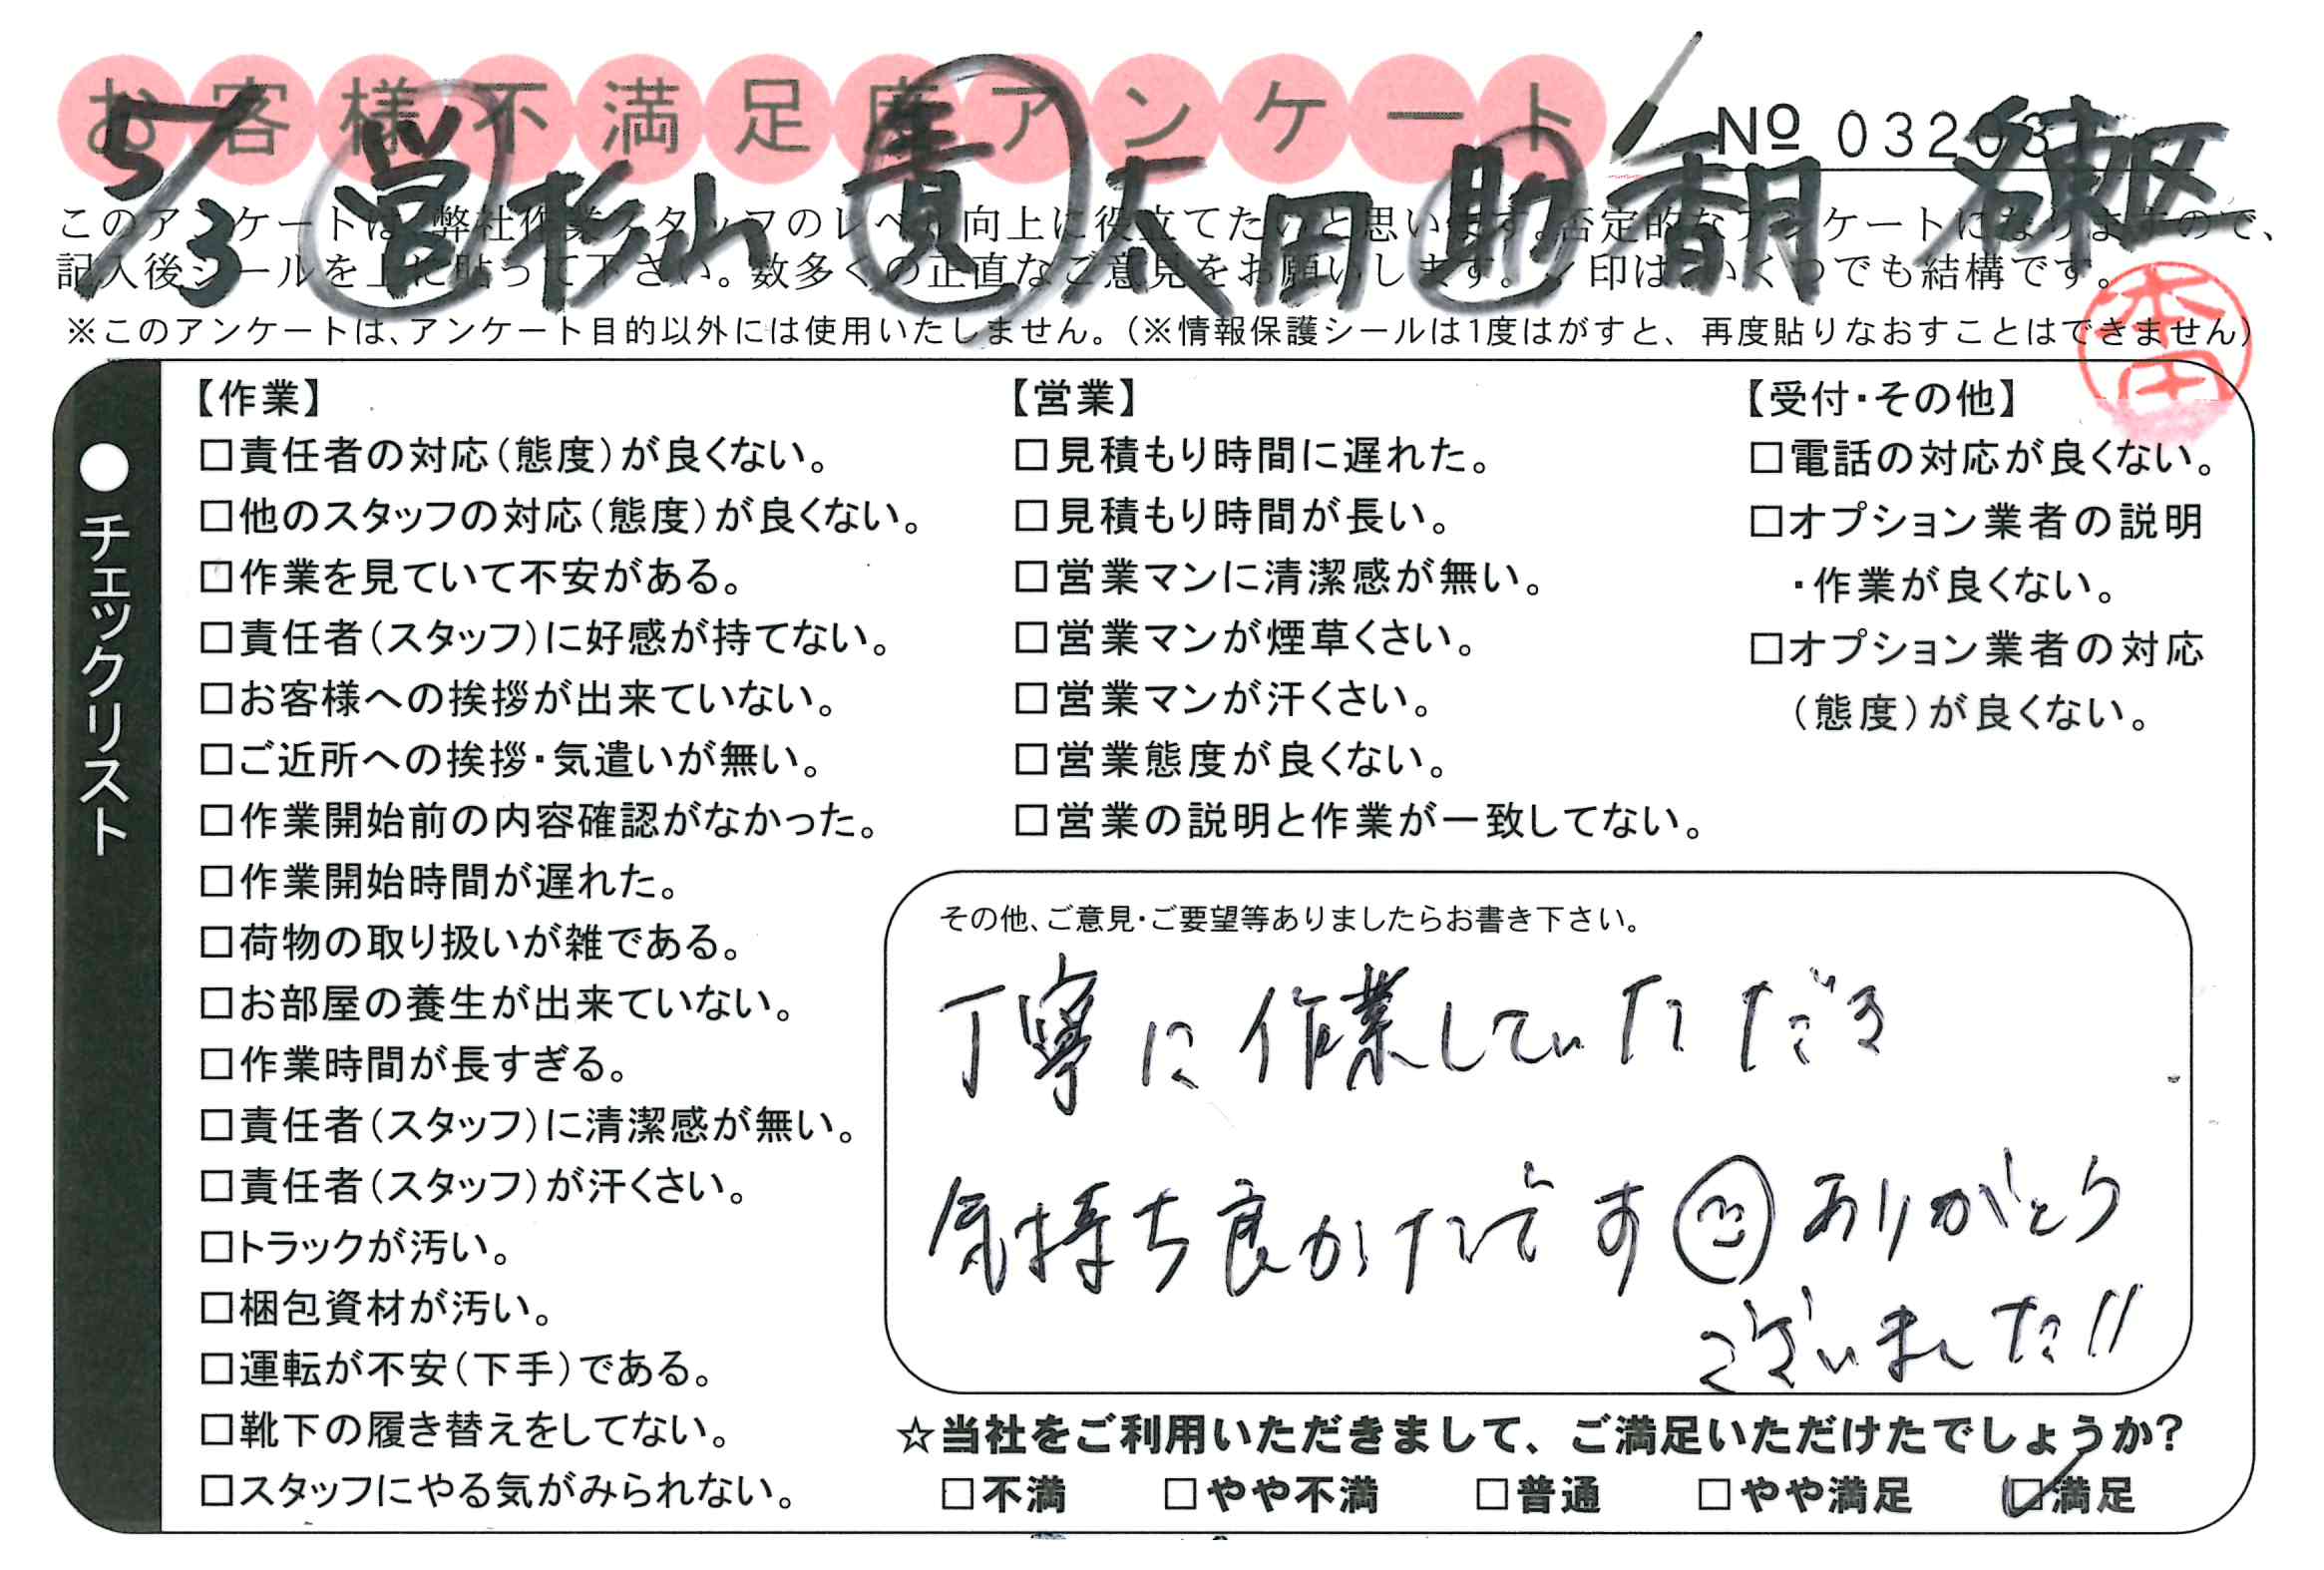 お客様不満足度アンケート
№ 03203
5/3 営 杉山 責 大田 助 香月
このアンケートは、弊社作業スタッフのレベル向上に役立てたいと思います。否定的なアンケートになりますので、
記入後シールを上に貼って下さい。数多くの正直なご意見をお願いします。✓印は、いくつでも結構です。
※このアンケートは、アンケート目的以外には使用いたしません。(※情報保護シールは1度はがすと、再度貼りなおすことはできません)
本田
●チェックリスト
【作業】
□責任者の対応(態度)が良くない。
□他のスタッフの対応(態度)が良くない。
□作業を見ていて不安がある。
□責任者(スタッフ)に好感が持てない。
□お客様への挨拶が出来ていない。
□ご近所への挨拶・気遣いが無い。
□作業開始前の内容確認がなかった。
□作業開始時間が遅れた。
□荷物の取り扱いが雑である。
□お部屋の養生が出来ていない。
□作業時間が長すぎる。
□責任者(スタッフ)に清潔感が無い。
□責任者(スタッフ)が汗くさい。
□トラックが汚い。
□梱包資材が汚い。
□運転が不安(下手)である。
□靴下の履き替えをしてない。
□スタッフにやる気がみられない。
【営業】
□見積もり時間に遅れた。
□見積もり時間が長い。
□営業マンに清潔感が無い。
□営業マンが煙草くさい。
□営業マンが汗くさい。
□営業態度が良くない。
□営業の説明と作業が一致してない。
【受付・その他】
□電話の対応が良くない。
□オプション業者の説明
・作業が良くない。
□オプション業者の対応
(態度)が良くない。
その他、ご意見・ご要望等ありましたらお書き下さい。
丁寧に作業していただき
気持ち良かったです ありがとう
ございました!!
☆当社をご利用いただきまして、ご満足いただけたでしょうか?
□不満 □やや不満 □普通 □やや満足 ☑満足